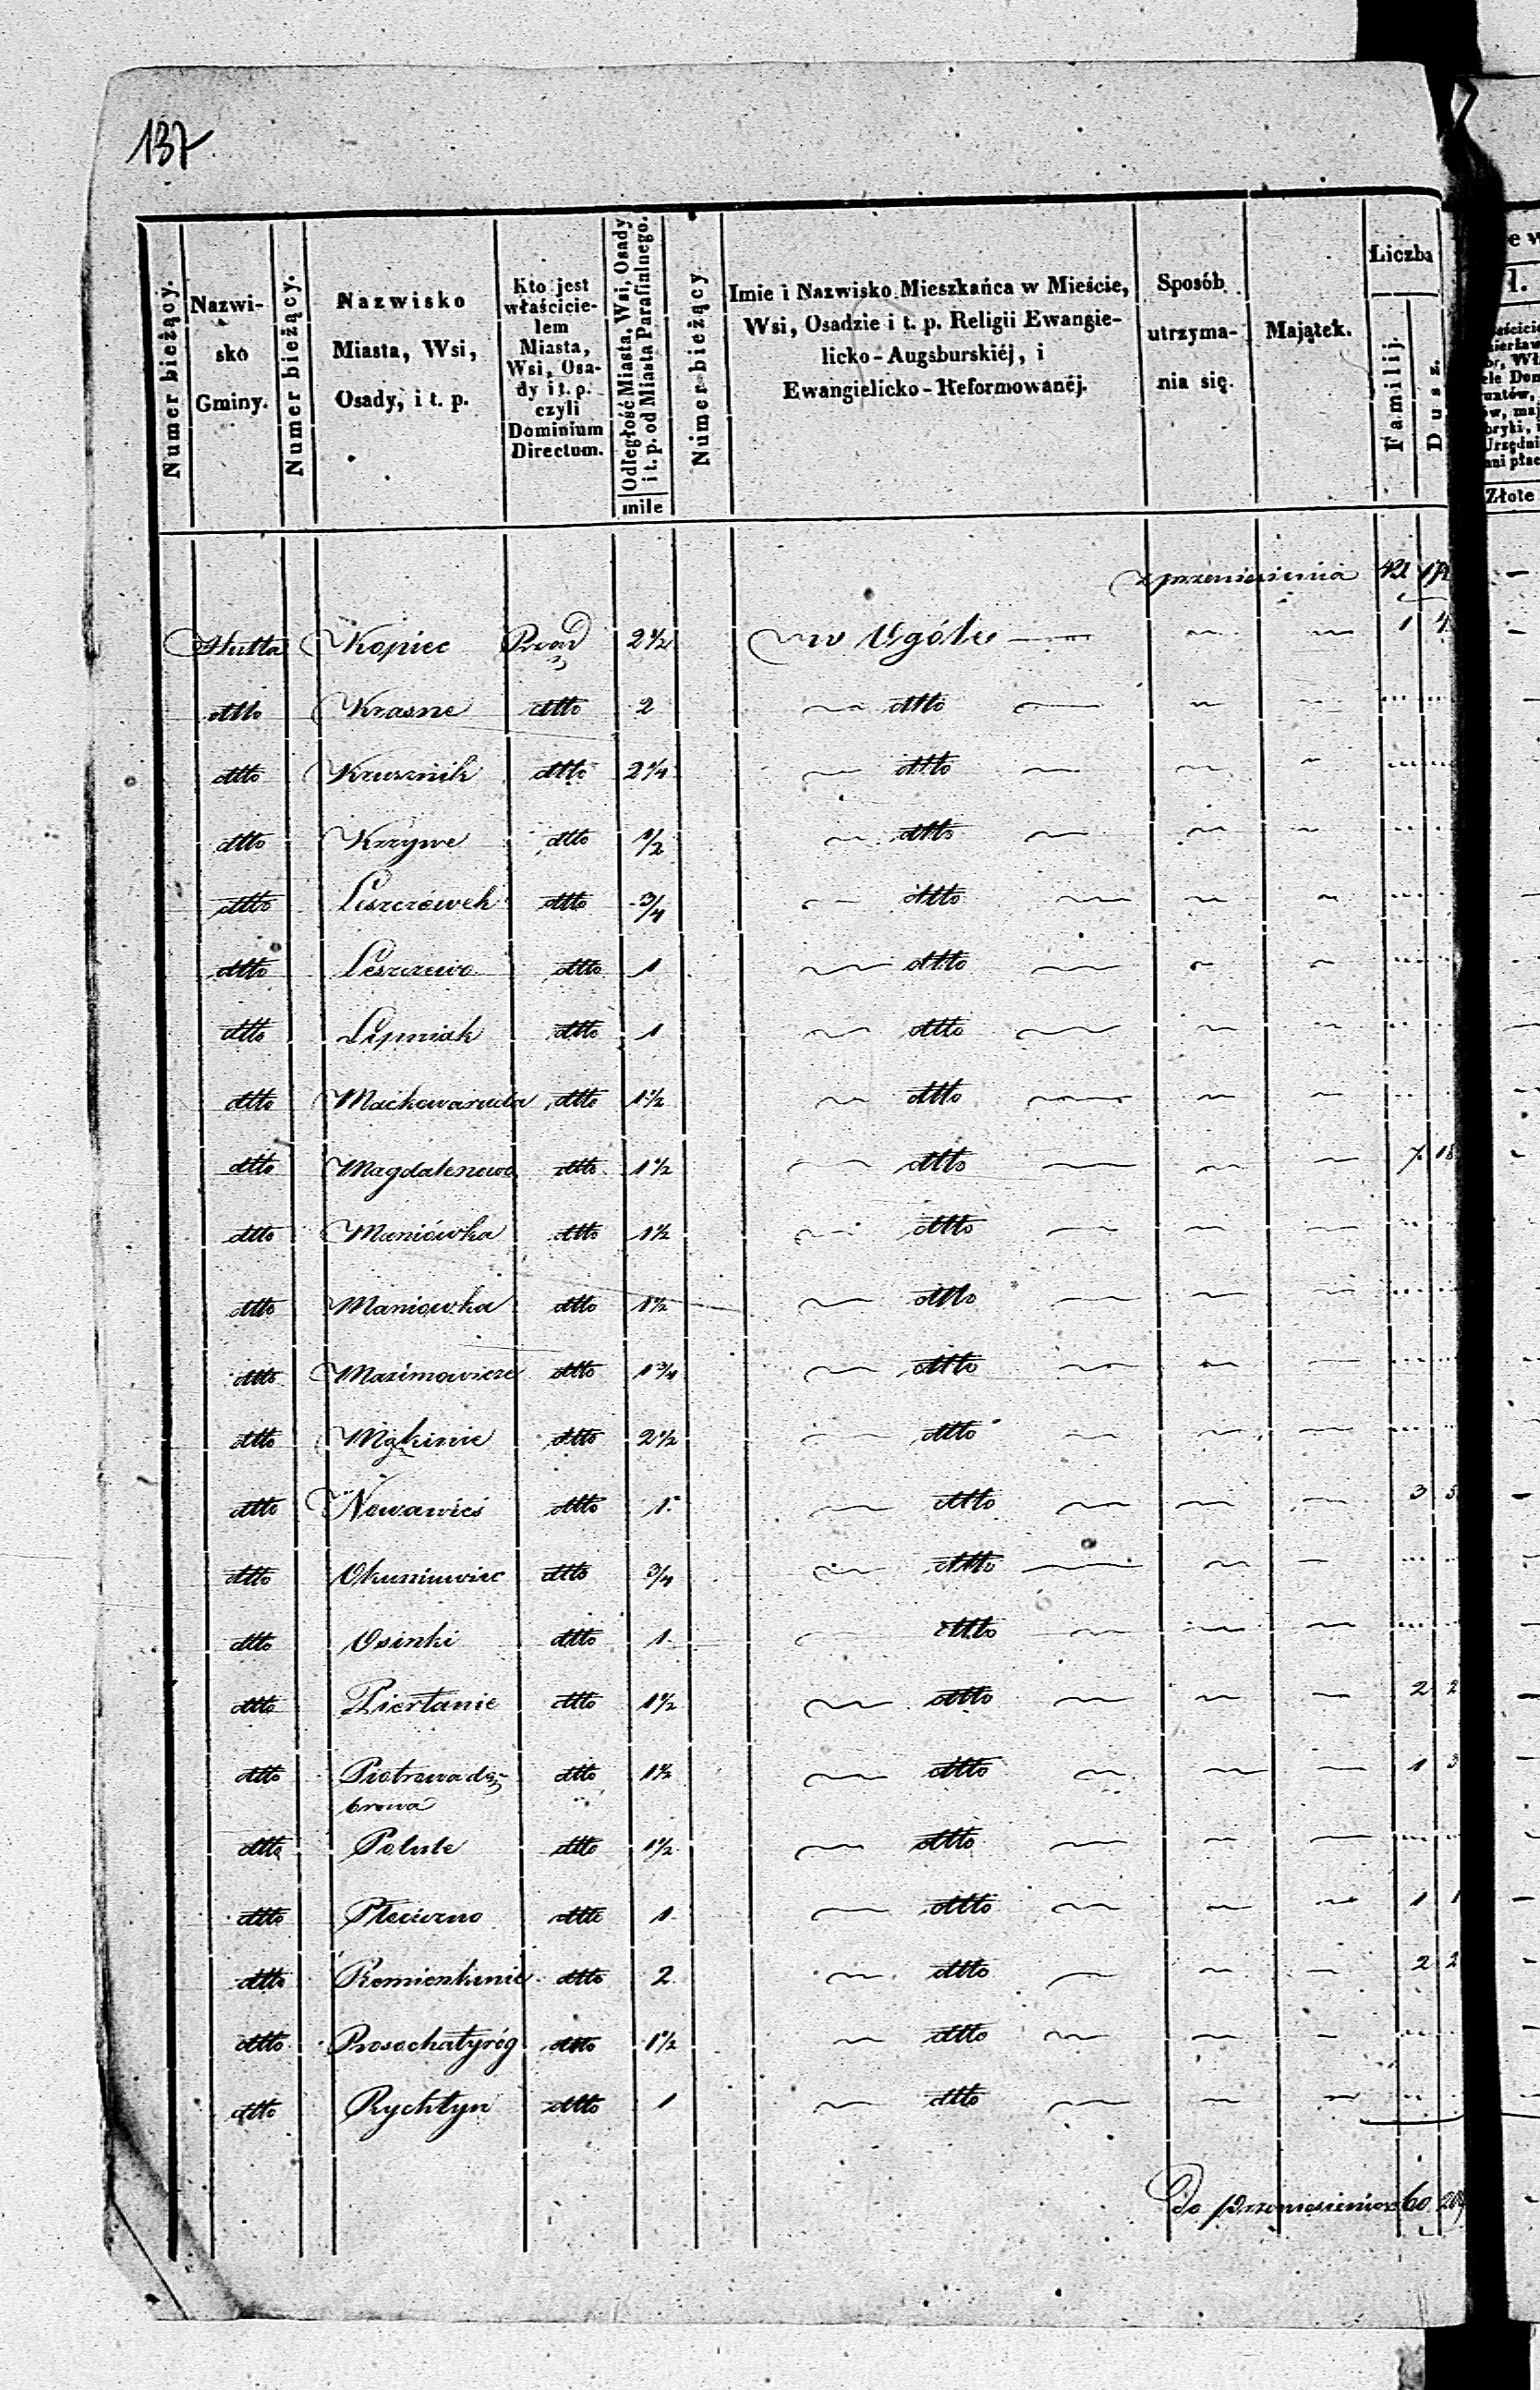 137
Numer bieżący.
Nazwi-
sko
Gminy.
Numer bieżący.
Nazwisko
Miasta, Wsi,
Osady, i t. p.
Kto jest
właścicie-
lem
Miasta,
Wsi, Osa-
dy i t. p.
czyli
Dominium
Directum.
Odległość Miasta, Wsi, Osady
i t. p. od Miasta Parafialnego.
mile
Numer bieżący
Imie i Nazwisko Mieszkańca w Mieście,
Wsi, Osadzie i t. p. Religii Ewangie-
licko-Augsburskiéj, i
Ewangielicko-Reformowanéj.
Sposób
utrzyma-
nia się.
Majątek.
Liczba
Familij.
Dusz.
Złote
z przeniesienia 42
Hutta Kopiec Rząd 2 1/2 w Ogóle 1 4
dtto Krasne dtto 2 dtto
dtto Krusznik dtto 2 1/4 dtto
dtto Krzywe dtto 1/2 dtto
dtto Leszczówek dtto 3/4 dtto
dtto Leszczewo dtto 1 dtto
dtto Lipniak dtto 1 dtto
dtto Maćkowaruda dtto 1 1/2 dtto
dtto Magdalenowo dtto 1 1/2 dtto 7 18
dtto Muniówka dtto 1 1/2 dtto
dtto Maniówka dtto 1 1/2 dtto
dtto Maximowicze dtto 1 3/4 dtto
dtto Mąkinie dtto 2 1/2 dtto
dtto Nowawieś dtto 1 dtto 3 5
dtto Okuniowiec dtto 3/4 dtto
dtto Osinki dtto 1 dtto
dtto Piertanie dtto 1 1/2 dtto 2 2
dtto Piotrowa dą-
browa dtto 1 1/2 dtto 1 3
dtto Polule dtto 1 1/2 dtto
dtto Płociczno dtto 1 dtto 1 1
dtto Remieńkinie dtto 2 dtto 2 2
dtto Rosochatyróg dtto 1 1/2 dtto
dtto Rychtyn dtto 1 dtto
Do przeniesienia 60